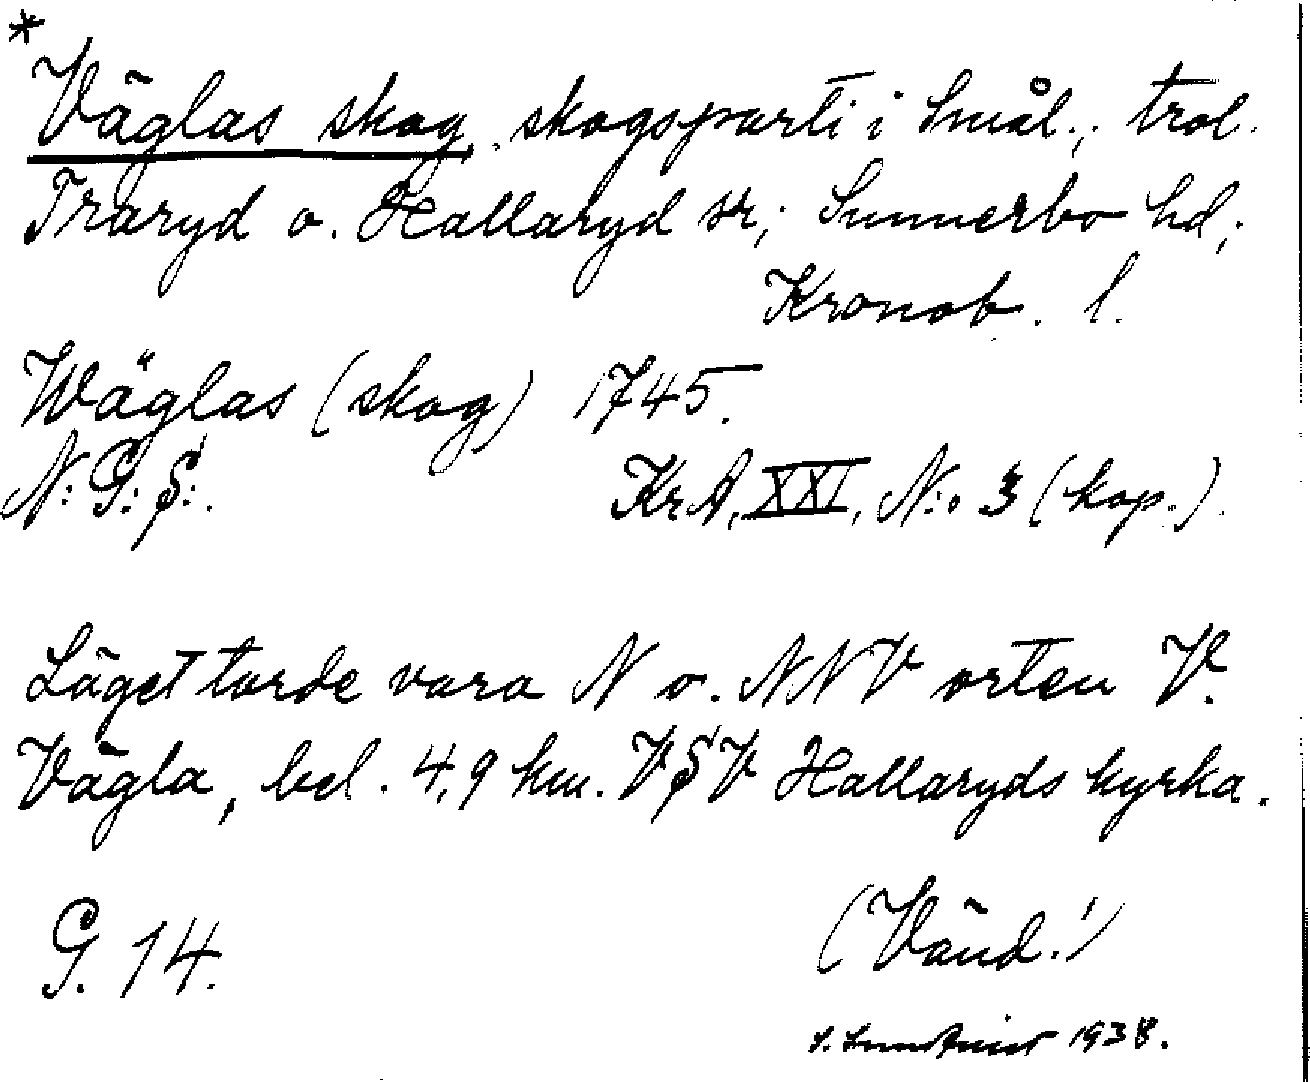 *
Väglas skog, skogsparti i Smål., trol.
Traryd o. Hallaryd sr, Sunnerbo hd,
Kronob. l.
Wäglas (skog) 1745.
N: G: S:. KrA, XXI, N:o 3 (kop.).
Läget torde vara N o. NNV orten V.
Vägla, bel. 4,9 km. VSV Hallaryds kyrka.
G. 14. (Vänd!)
1938.